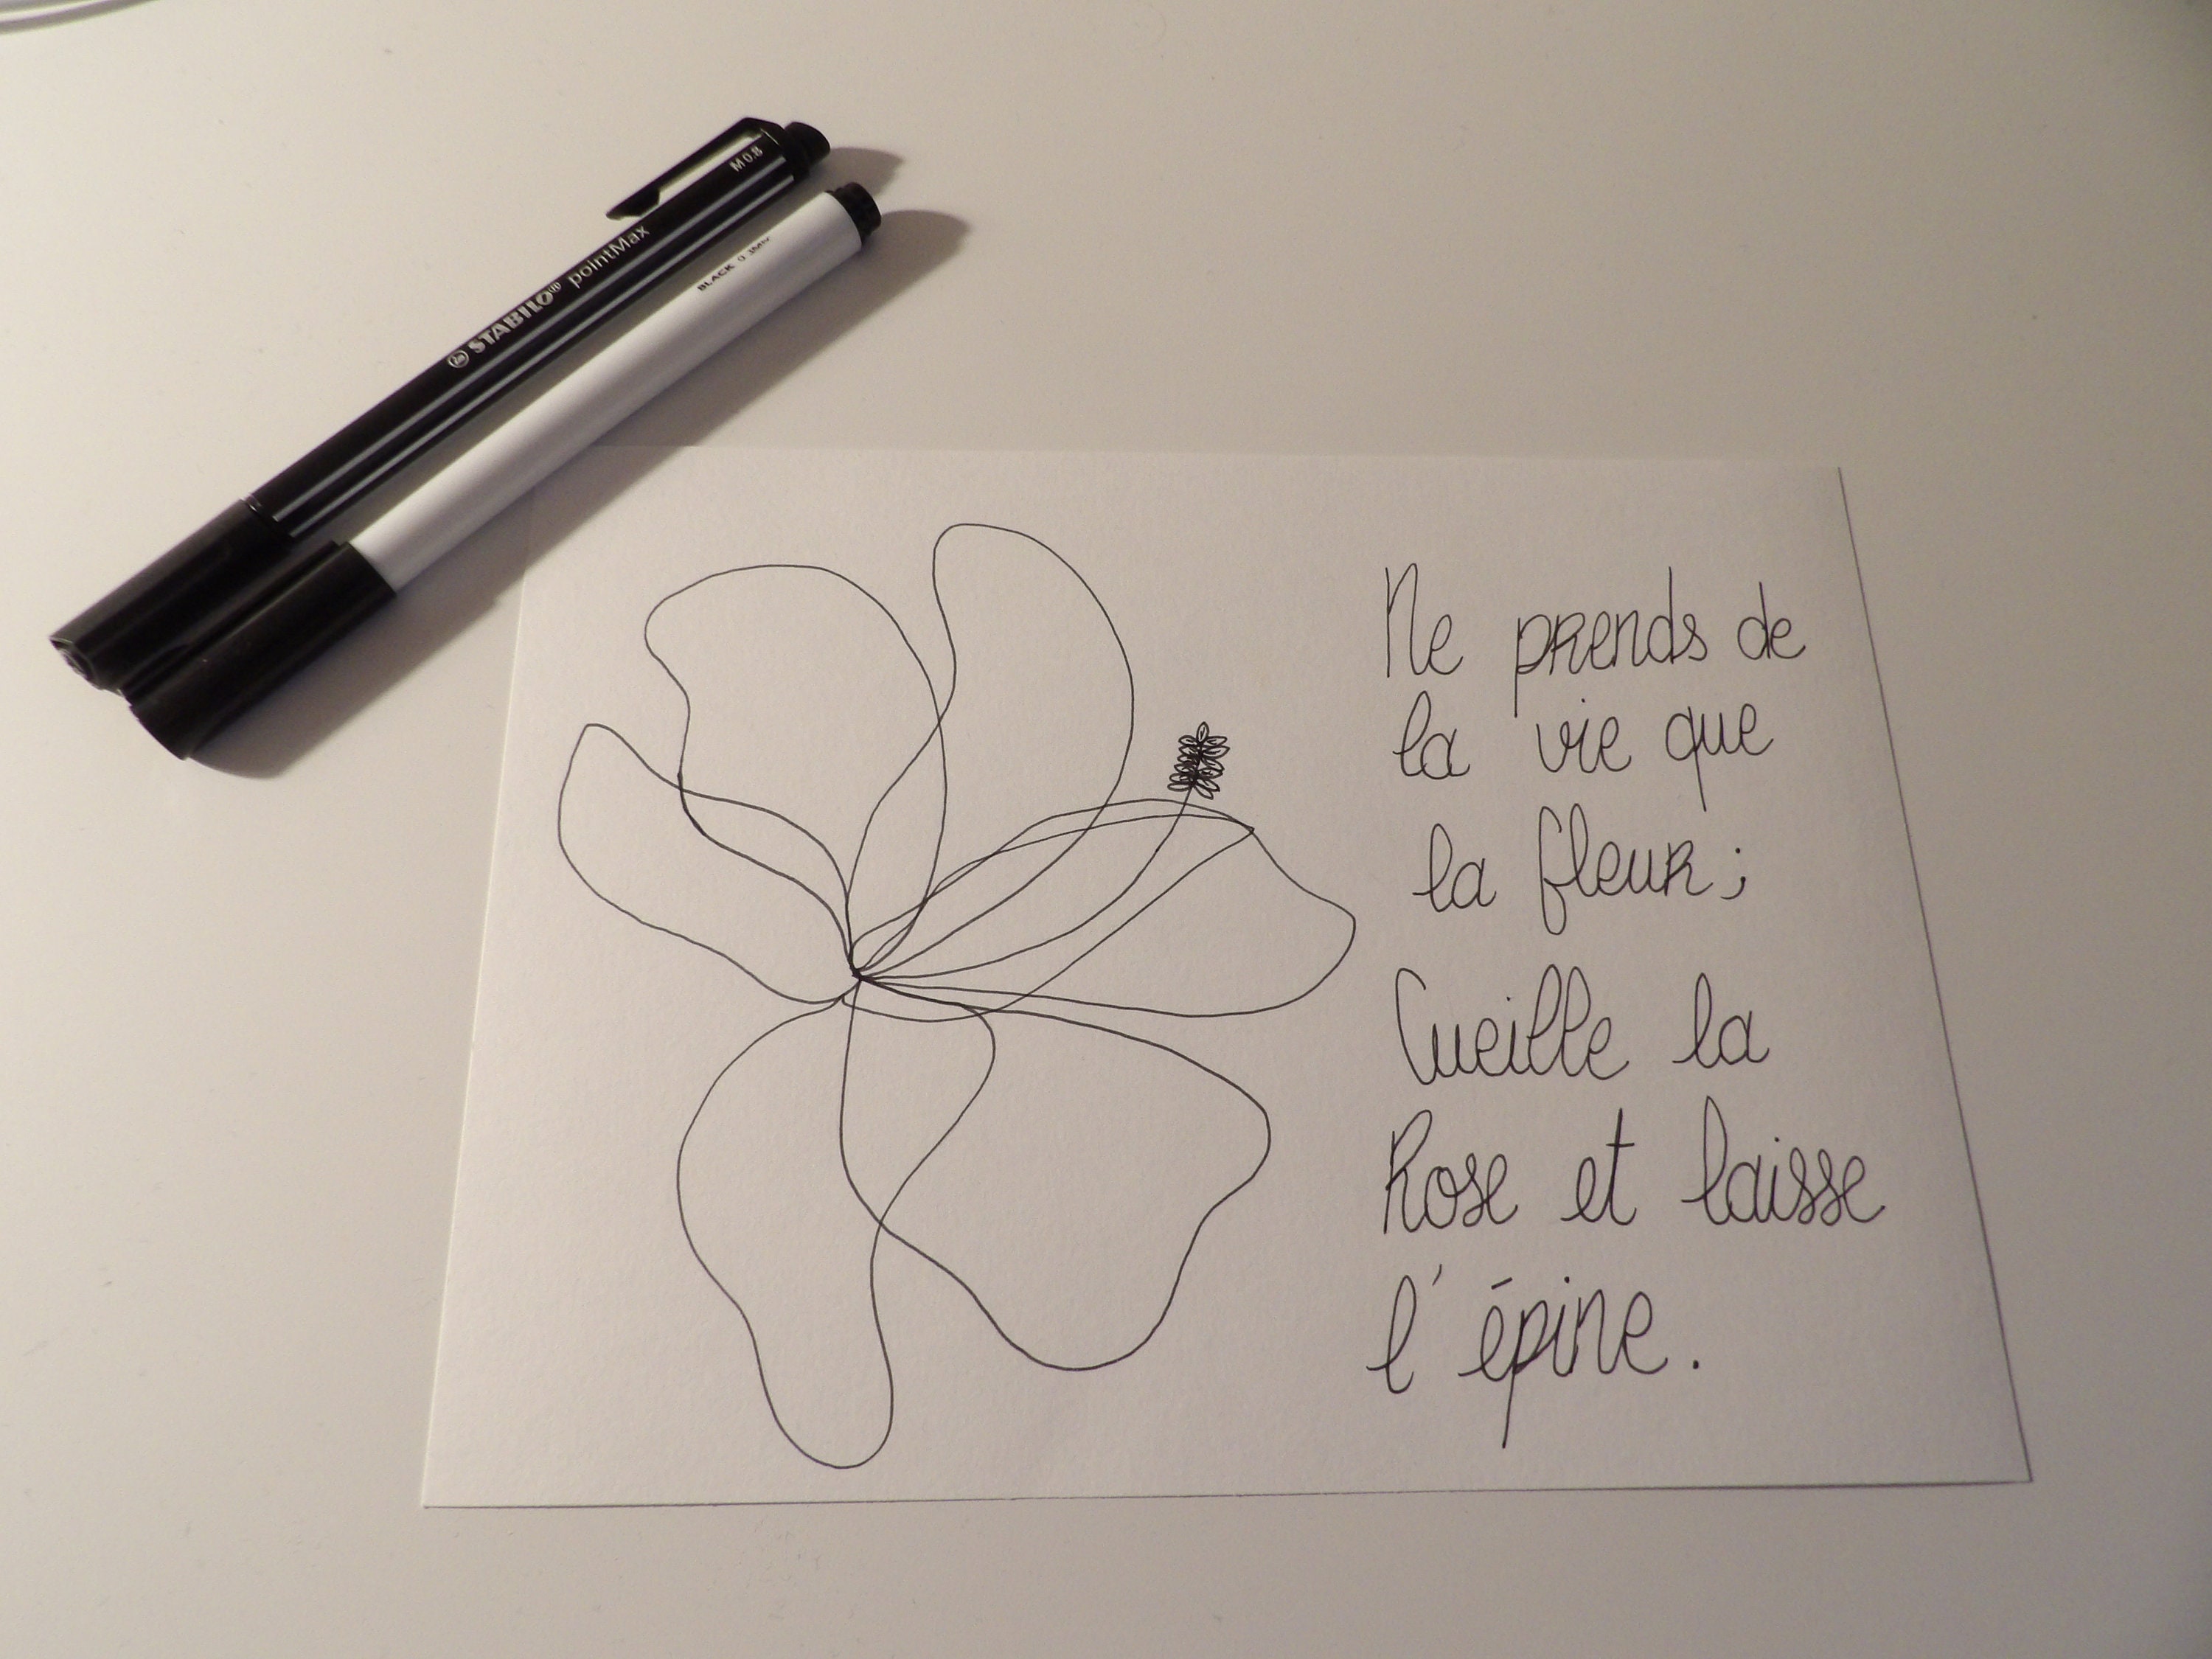 M 0.8
STABILO® pointMax
BLACK 0.3MM
Ne prends de
la vie que
la fleur ;
Cueille la
Rose et laisse
l'épine.